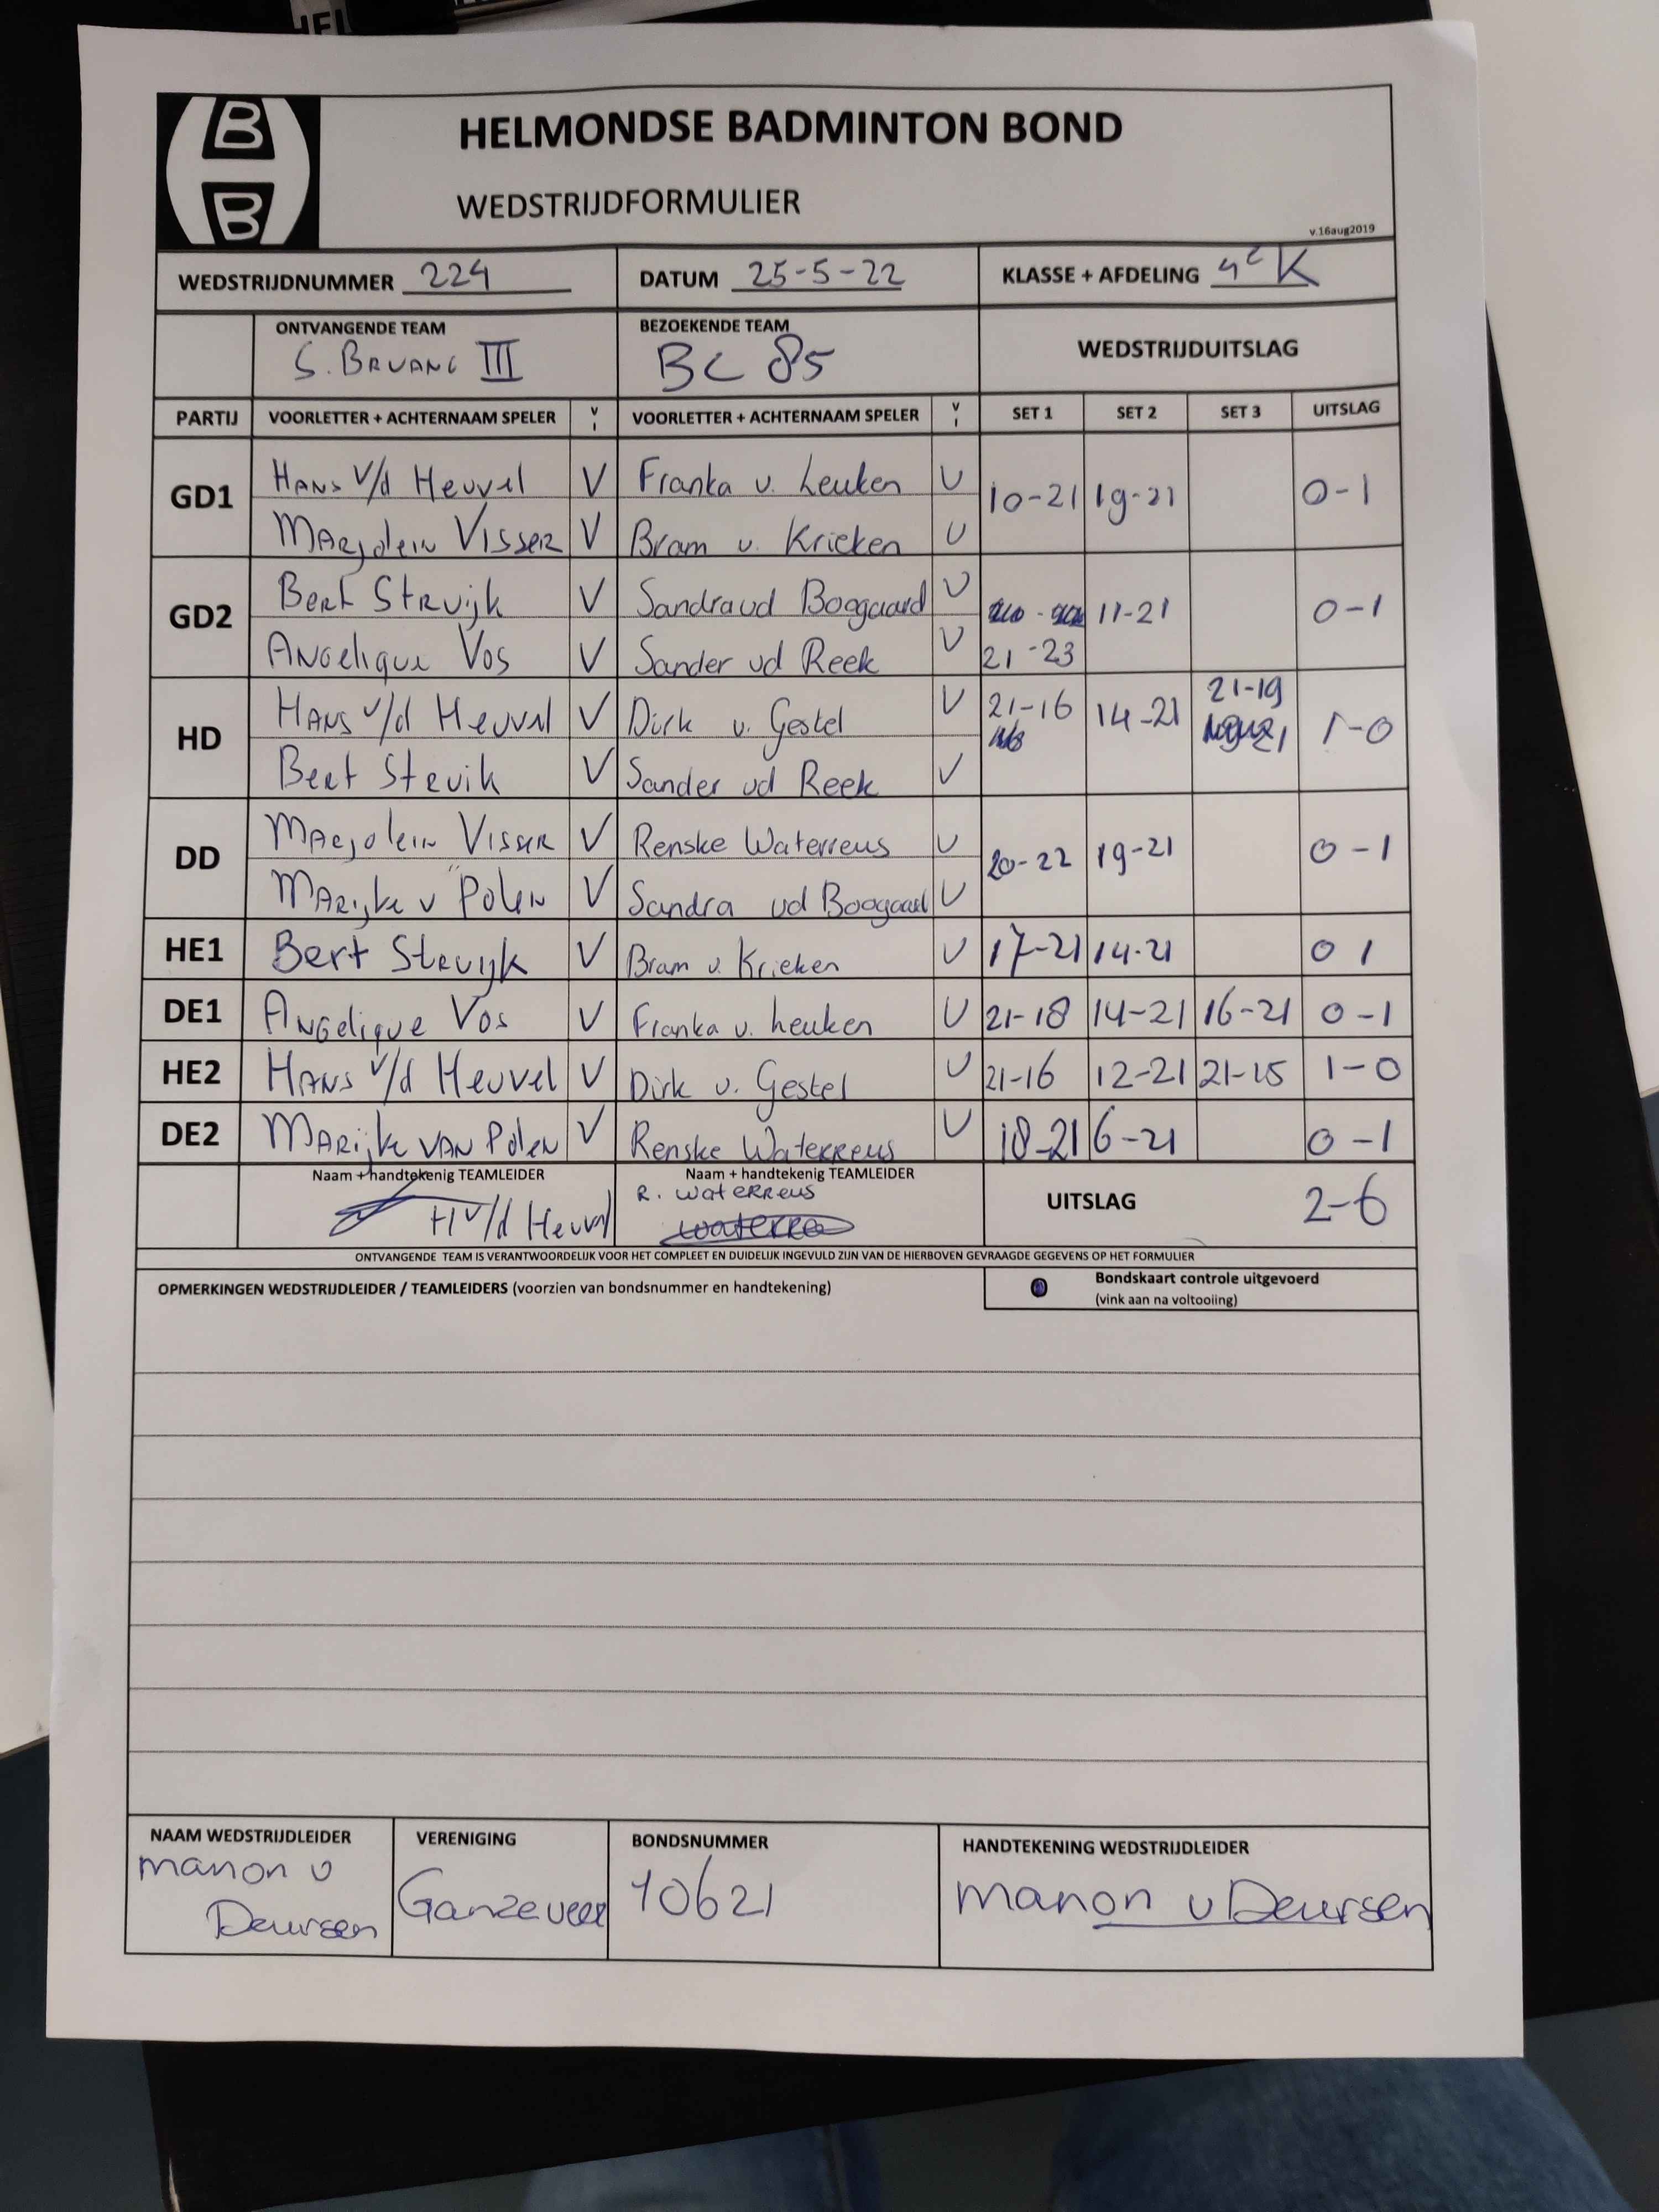 HEL
B
B
HELMONDSE BADMINTON BOND
WEDSTRIJDFORMULIER
v.16aug2019
WEDSTRIJDNUMMER 224 DATUM 25-5-22 KLASSE + AFDELING 4e K
ONTVANGENDE TEAM BEZOEKENDE TEAM WEDSTRIJDUITSLAG
S. BRUANC III BC 85
PARTIJ VOORLETTER + ACHTERNAAM SPELER V VOORLETTER + ACHTERNAAM SPELER V SET 1 SET 2 SET 3 UITSLAG
GD1 Hans v/d Heuvel V Franka v. Leuken V 10-21 19-21 0-1
Marjolein Visser V Bram v. Krieken V
GD2 Bert Struijk V Sandra vd Boogaard V 11-21 0-1
Angelique Vos V Sander vd Reek V 21-23
HD Hans v/d Heuvel V Dirk v. Gestel V 21-16 14-21 21-19 1-0
Bert Struik V Sander vd Reek V
DD Marjolein Visser V Renske Waterreus V 20-22 19-21 0-1
Marijke v Polen V Sandra vd Boogaard V
HE1 Bert Struijk V Bram v. Krieken V 17-21 14-21 0 1
DE1 Angelique Vos V Franka v. Leuken V 21-18 14-21 16-21 0-1
HE2 Hans v/d Heuvel V Dirk v. Gestel V 21-16 12-21 21-15 1-0
DE2 Marijke van Polen V Renske Waterreus V 18-21 6-21 0-1
Naam + handtekenig TEAMLEIDER Naam + handtekenig TEAMLEIDER
H v/d Heuvel R. Waterreus UITSLAG 2-6
ONTVANGENDE TEAM IS VERANTWOORDELIJK VOOR HET COMPLEET EN DUIDELIJK INGEVULD ZIJN VAN DE HIERBOVEN GEVRAAGDE GEGEVENS OP HET FORMULIER
OPMERKINGEN WEDSTRIJDLEIDER / TEAMLEIDERS (voorzien van bondsnummer en handtekening) Bondskaart controle uitgevoerd
(vink aan na voltooiing)
NAAM WEDSTRIJDLEIDER VERENIGING BONDSNUMMER HANDTEKENING WEDSTRIJDLEIDER
manon v Deursen Ganzeveer 10621 manon v Deursen